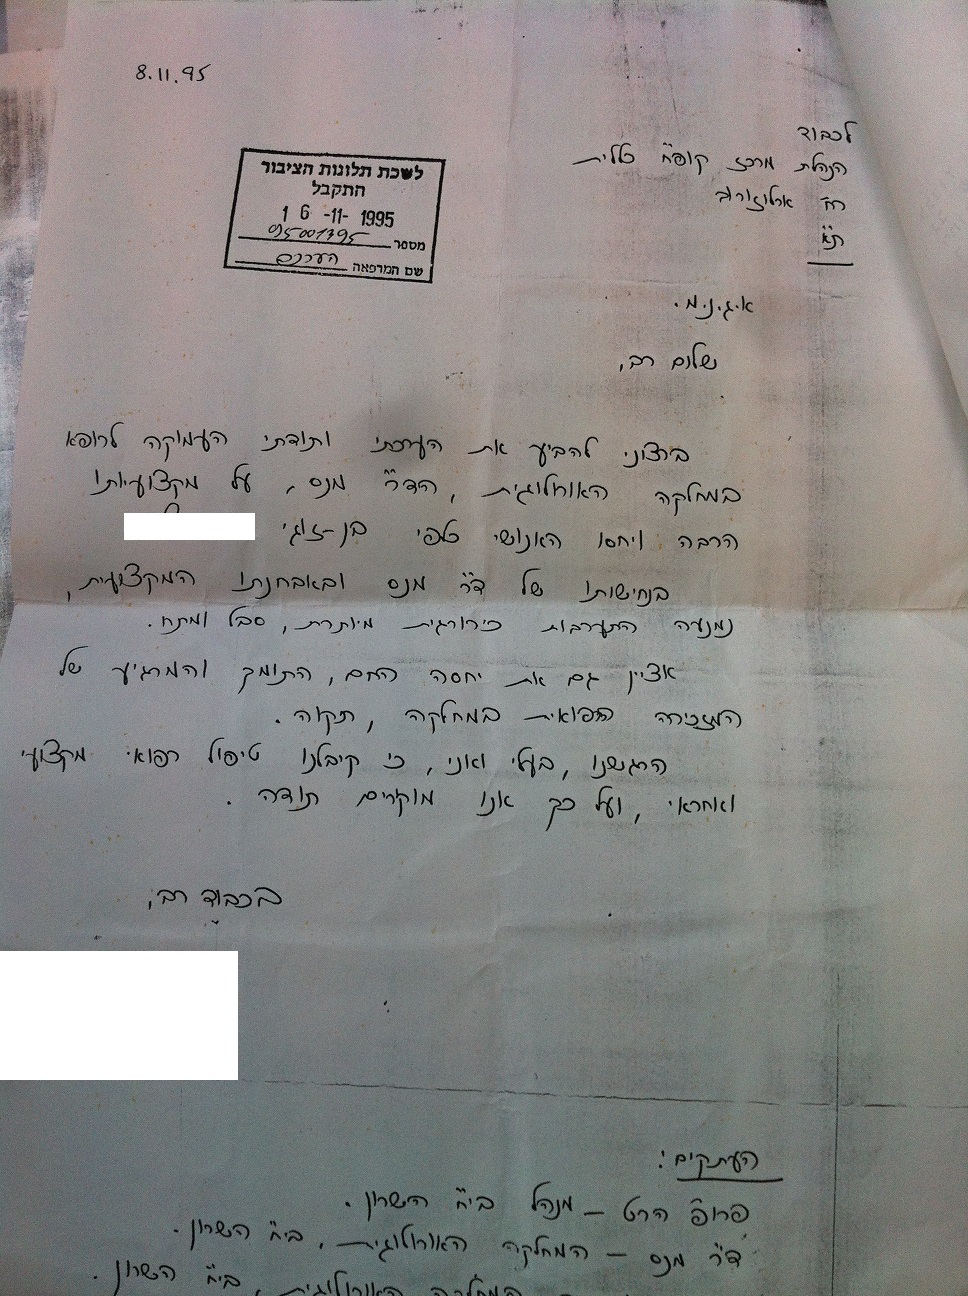 8.11.95
לכבוד
הנהלת מרכז קופ"ח כללית
רח' ארלוזורוב
ת"א
לשכת תלונות הציבור
התקבל
16-11-1995
מספר 095001395
שם המרפאה
א.ג.נ.מ.
שלום רב,
ברצוני להביע את הערכתי ותודתי העמוקה לרופא
במחלקה האורולוגית, הד"ר מנס, על מקצועיותו
הרבה ויחסו האנושי כלפי בן-זוגי
בנחישותו של ד"ר מנס ובאבחנתו המקצועית,
נמנעה התערבות כירורגית מיותרת, סבל ומתח.
אציין גם את יחסה החם, התומך והמרגיע של
המזכירה הרפואית במחלקה, תקוה.
הרגשנו, בעלי ואני, כי קיבלנו טיפול רפואי מקצועי
ואחראי, ועל כך אנו מוקירים תודה.
בכבוד רב,
העתקים:
פרופ' הרט - מנהל ביה"ח השרון.
ד"ר מנס - המחלקה האורולוגית, ביה"ח השרון.
המחלקה האורולוגית, ביה"ח השרון.